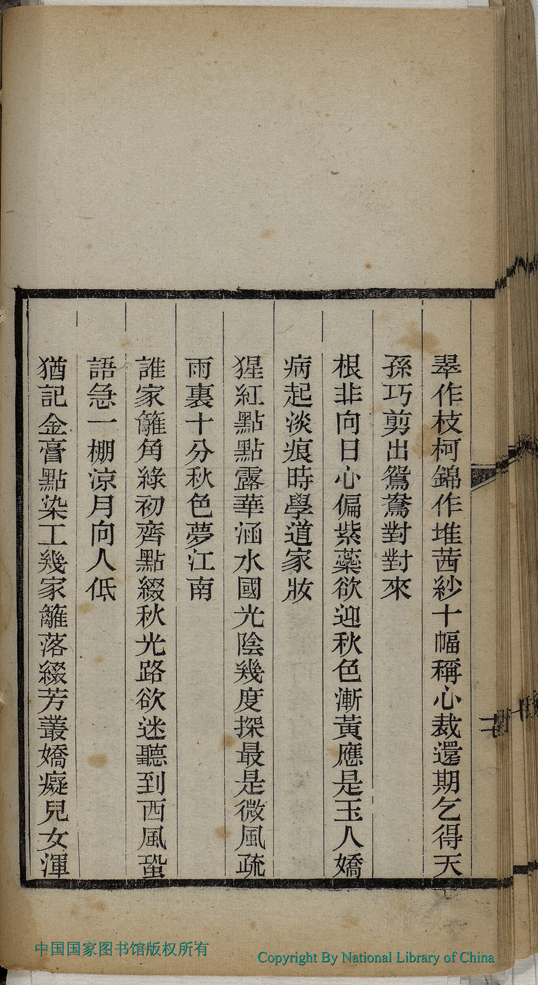 翠作枝柯錦作堆茜紗十幅稱心裁還期乞得天
孫巧剪出鴛鴦對對來
根非向日心偏紫蘂欲迎秋色漸黃應是玉人嬌
病起淡痕時學道家妝
猩紅點點露華涵水國光陰幾度探最是微風疏
雨裏十分秋色夢江南
誰家籬角綠初齊點綴秋光路欲迷聽到西風蛩
語急一棚涼月向人低
猶記金膏點染工幾家籬落綴芳叢嬌癡兒女渾
中国国家图书馆版权所有
Copyright By National Library of China